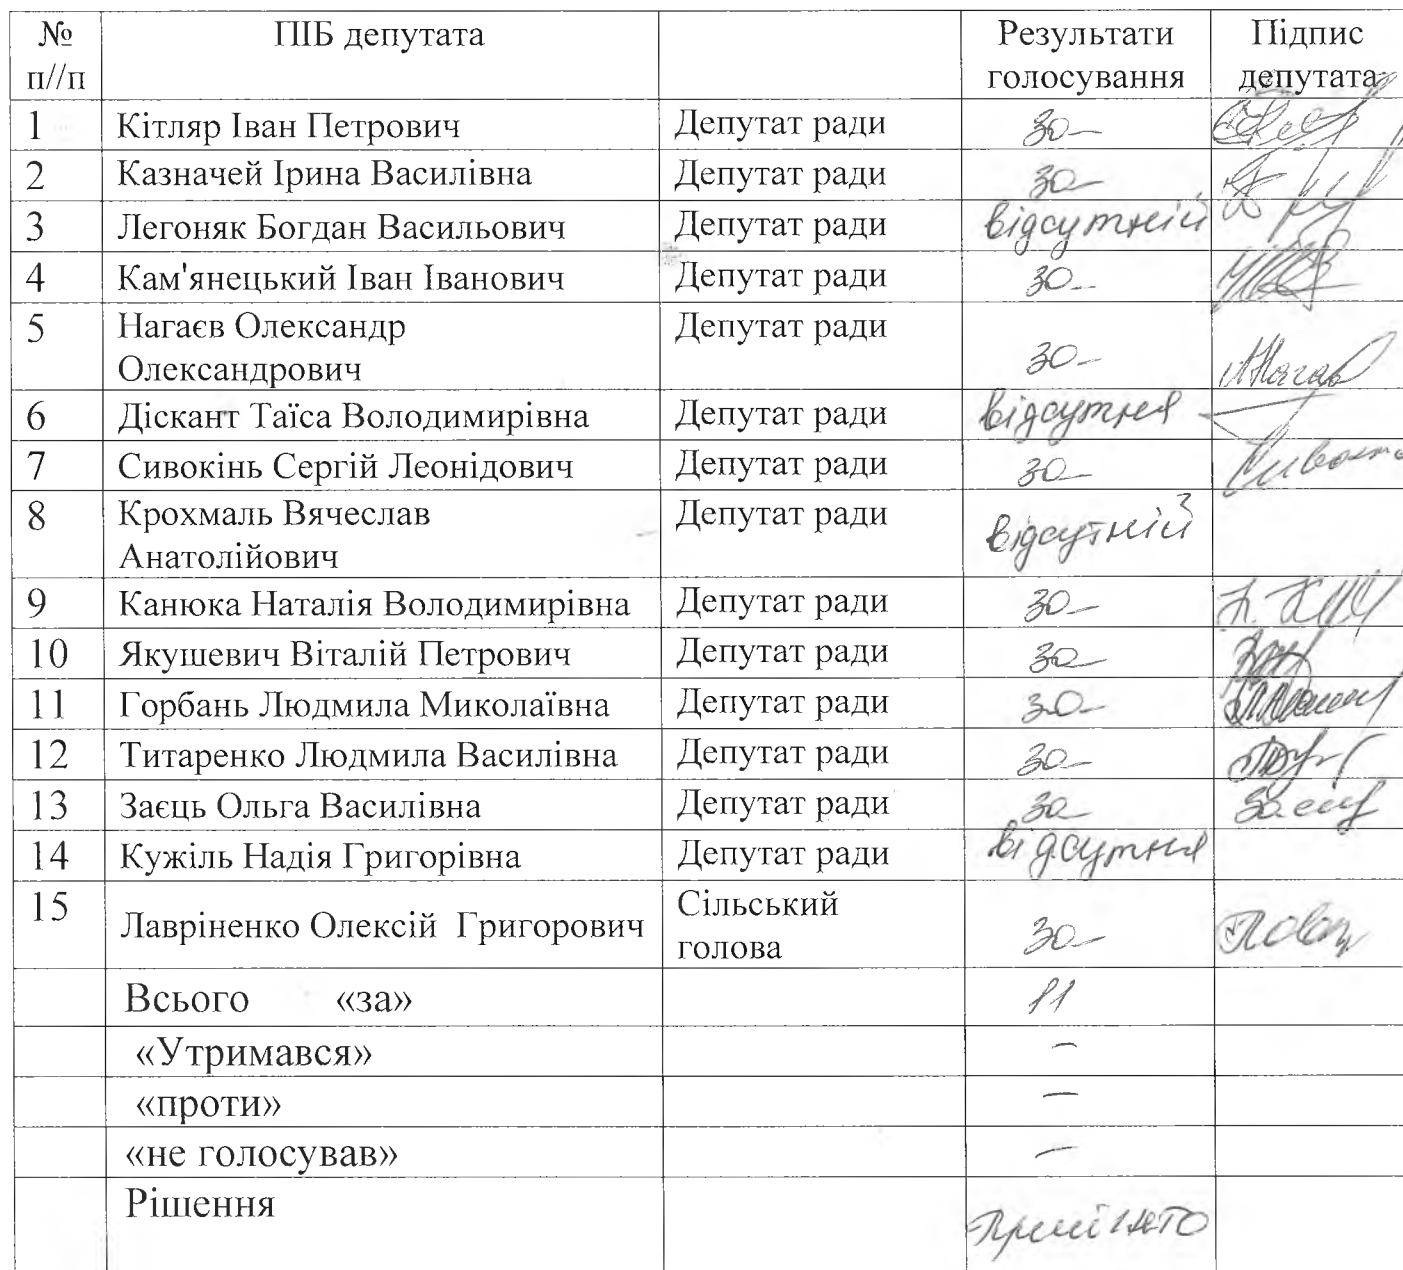 № ПІБ депутата Результати Підпис
п//п голосування депутата
1 Кітляр Іван Петрович Депутат ради за
2 Казначей Ірина Василівна Депутат ради за
3 Легоняк Богдан Васильович Депутат ради відсутній
4 Кам'янецький Іван Іванович Депутат ради за
5 Нагаєв Олександр Депутат ради
Олександрович за
6 Діскант Таїса Володимирівна Депутат ради відсутня
7 Сивокінь Сергій Леонідович Депутат ради за
8 Крохмаль Вячеслав Депутат ради відсутній
Анатолійович
9 Канюка Наталія Володимирівна Депутат ради за
10 Якушевич Віталій Петрович Депутат ради за
11 Горбань Людмила Миколаївна Депутат ради за
12 Титаренко Людмила Василівна Депутат ради за
13 Заєць Ольга Василівна Депутат ради за
14 Кужіль Надія Григорівна Депутат ради відсутня
15 Лавріненко Олексій Григорович Сільський
голова за
Всього «за» 11
«Утримався» –
«проти» –
«не голосував» –
Рішення прийнято